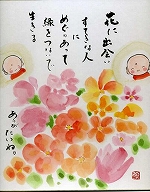 花に出会い
すてきな人
に
めぐりあって
縁をつないで
生きる
ありがたいね。